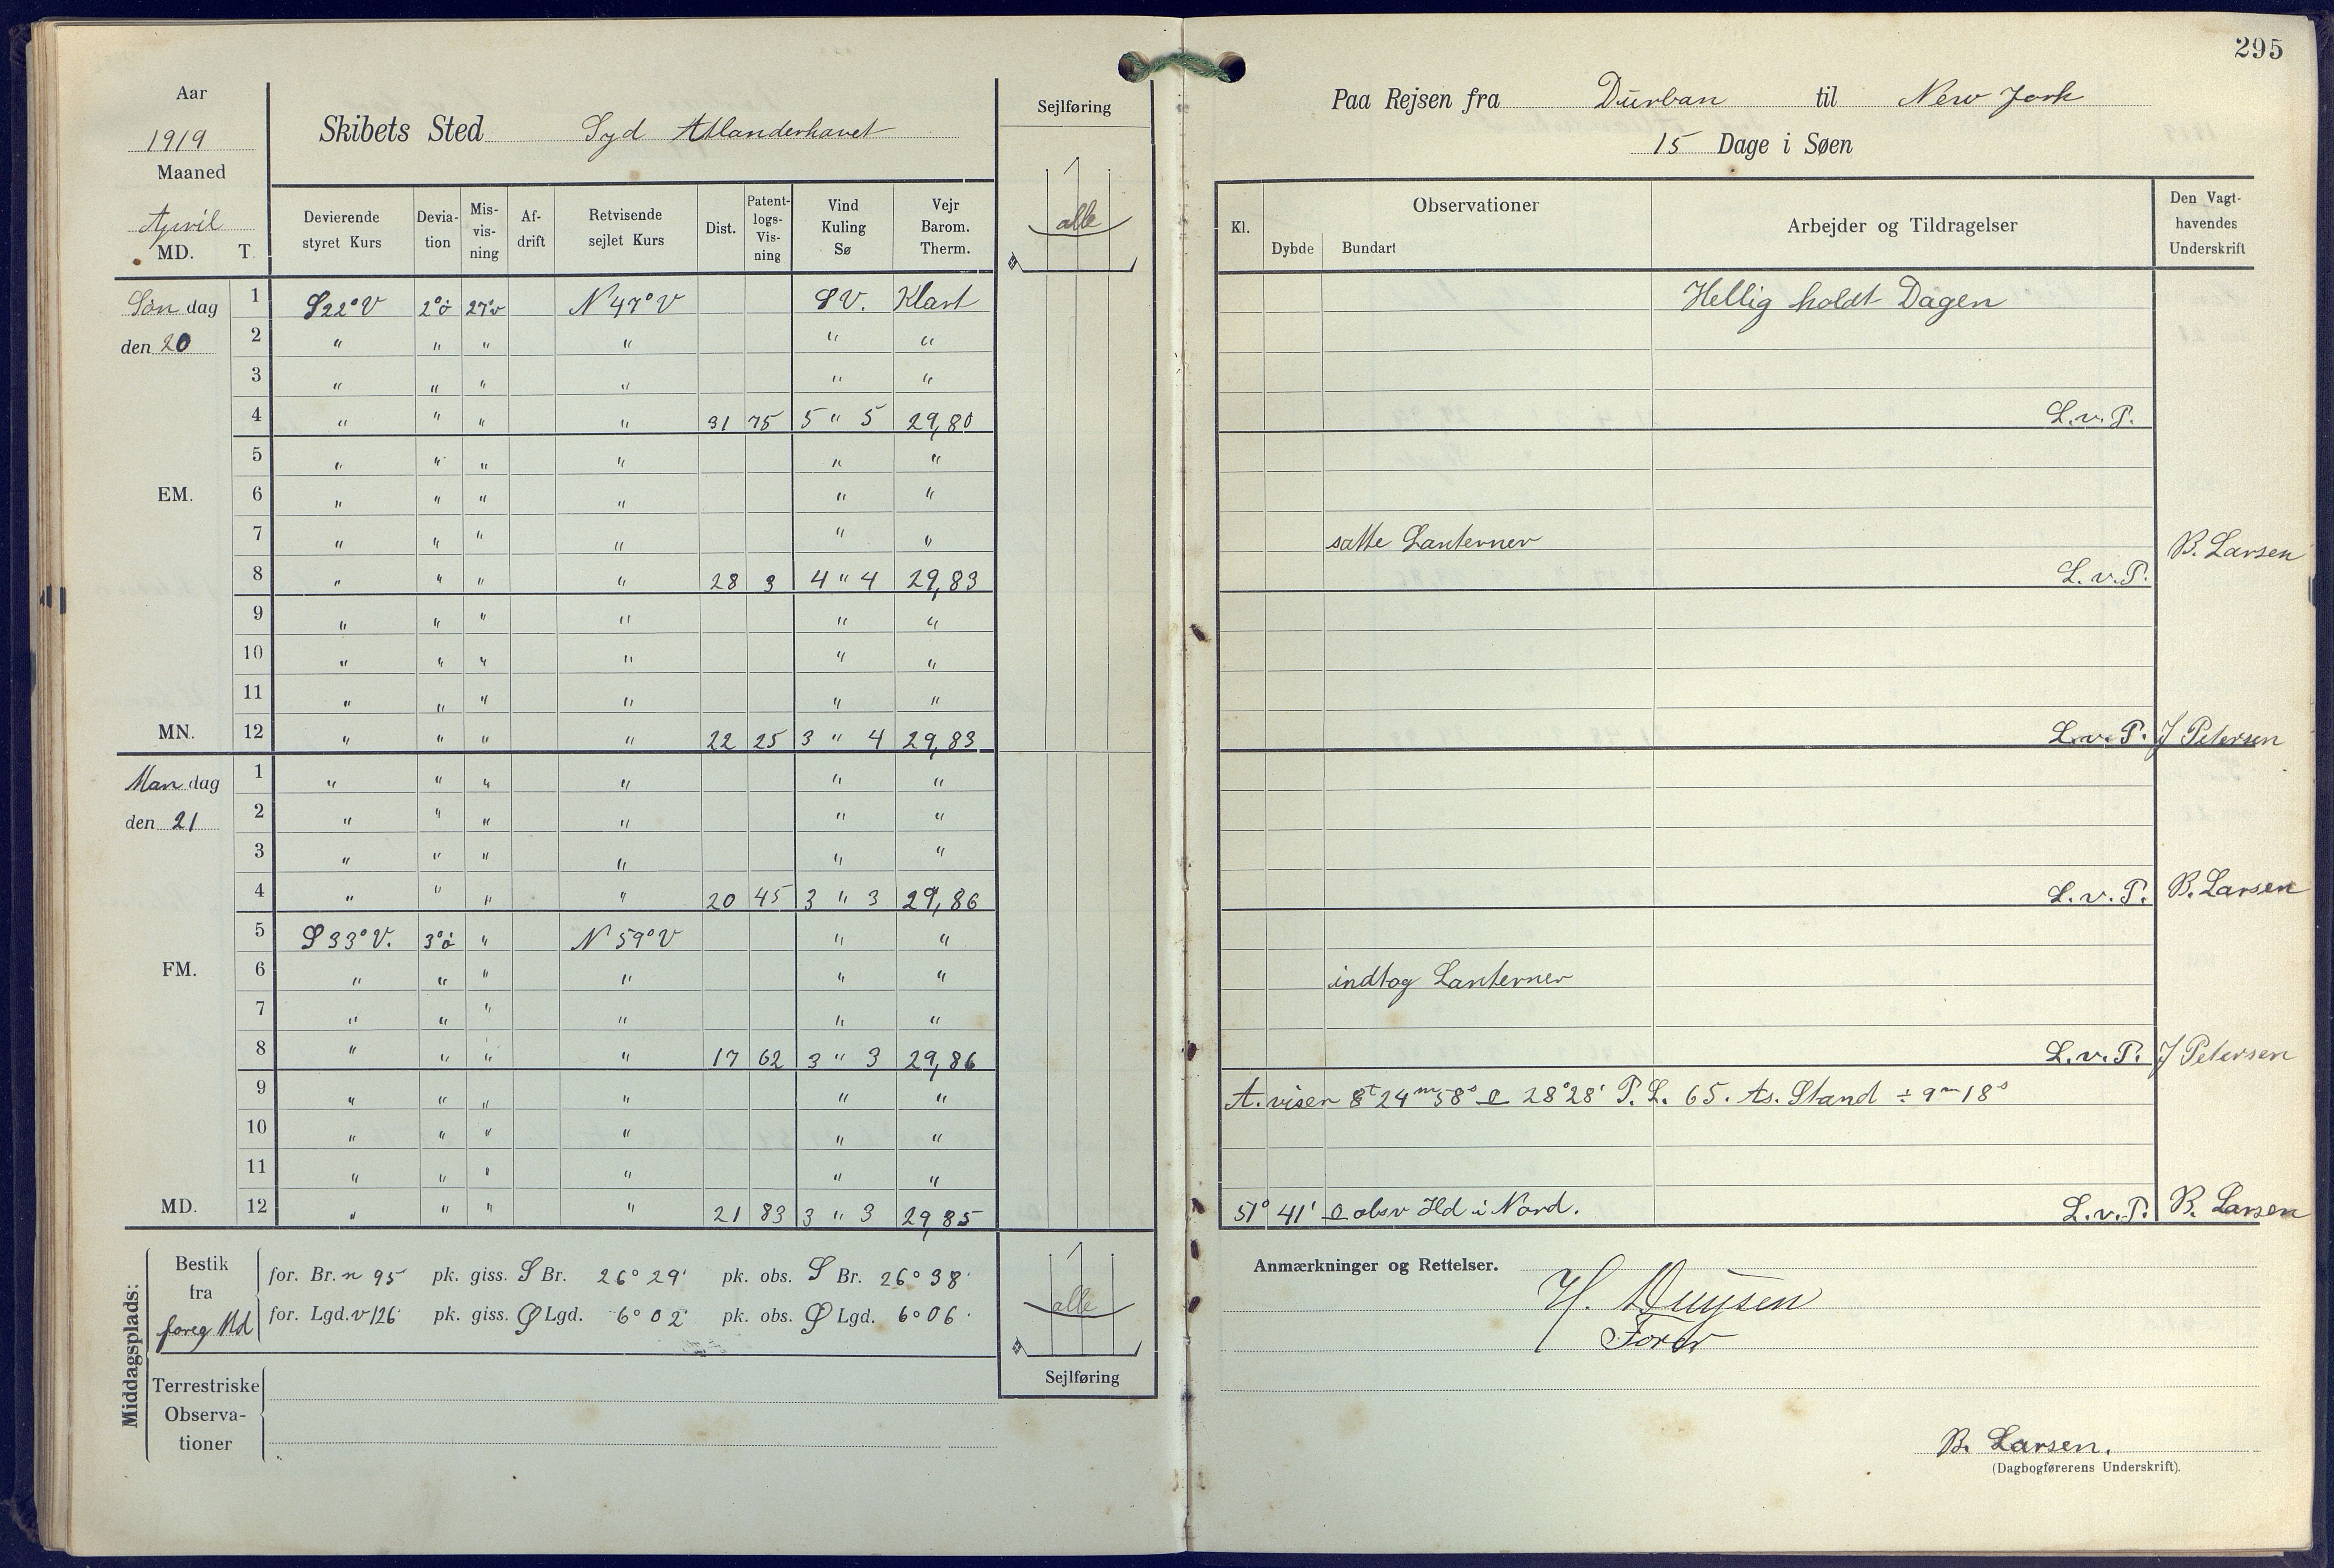 295
Aar
1919
Maaned
April
MD. T.
Skibets Sted Syd Atlanderhavet
Sejlføring
alle
Paa Rejsen fra Durban til New York
15 Dage i Søen
Devierende styret Kurs
Devia-tion
Mis-vis-ning
Af-drift
Retvisende sejlet Kurs
Dist.
Patent-logs-Vis-ning
Vind Kuling Sø
Vejr Barom. Therm.
Kl.
Observationer
Dybde Bundart
Arbejder og Tildragelser
Den Vagt-havendes Underskrift
Søn dag 1 S22°V 2°ö 27°v N 47°V SV. Klart Hellig holdt Dagen
den 20 2 " " " " " "
3 " " " " " "
4 " " " " 31 75 5 " 5 29,80 L.v.P.
5 " " " " " "
EM. 6 " " " " " "
7 " " " " " " satte Lanterner B. Larsen
8 " " " " 28 3 4 " 4 29,83 L.v.P.
9 " " " " " "
10 " " " " " "
11 " " " " " "
MN. 12 " " " " 22 25 3 " 4 29,83 L.v.P. J Petersen
Man dag 1 " " " " " "
den 21 2 " " " " " "
3 " " " " " "
4 " " " " 20 45 3 " 3 29,86 L.v.P. B. Larsen
5 S 33°V. 3°ö " N 59°V " "
FM. 6 " " " " " " indtog Lanterner
7 " " " " " "
8 " " " " 17 62 3 " 3 29,86 L.v.P. J Petersen
9 " " " " " " A. viser 8t 24m 58s 28°28' P.L. 65. As. Stand ÷ 9m 18s
10 " " " " " "
11 " " " " " "
MD. 12 " " " " 21 83 3 " 3 29,85 51° 41' obsv Hd i Nord. L.v.P. B. Larsen
Middagsplads:
Bestik fra foreg Md
for. Br. n 95 pk. giss. S Br. 26° 29' pk. obs. S Br. 26° 38'
for. Lgd. v 126' pk. giss. Ø Lgd. 6° 02' pk. obs. Ø Lgd. 6° 06'
alle
Sejlføring
Terrestriske Observa-tioner
Anmærkninger og Rettelser.
H.
Fører
B. Larsen.
(Dagbogførerens Underskrift).